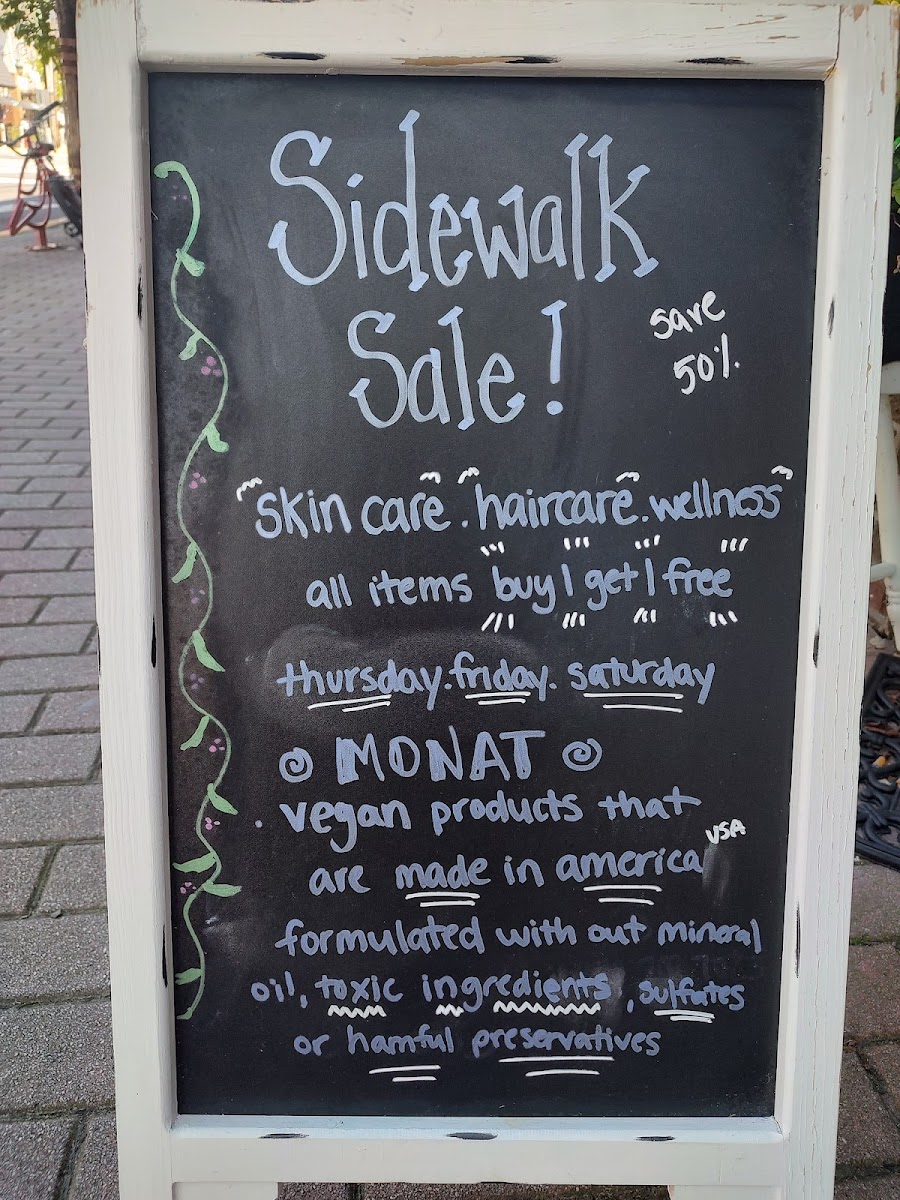 Sidewalk
Sale!
save
50%
skin care . haircare . wellness
all items buy 1 get 1 free
thursday. friday. saturday
MONAT
. vegan products that
are made in america USA
formulated with out mineral
oil, toxic ingredients, sulfates
or hamful preservatives